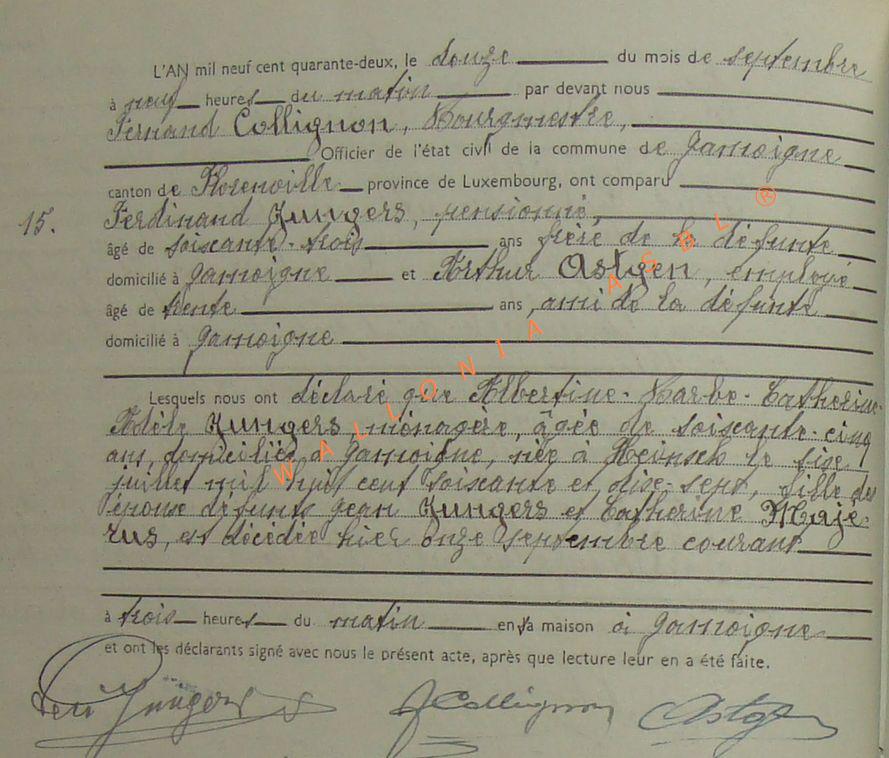 L'AN mil neuf cent quarante-deux, le douze du mois de septembre
à neuf heures du matin par devant nous
Fernand Collignon, Bourgmestre,
Officier de l'état civil de la commune de Jamoigne
canton de Florenville province de Luxembourg, ont comparu
15. Ferdinand Jungers, pensionné,
âgé de soixante-trois ans frère de la défunte
domicilié à Jamoigne et Arthur Astgen, employé
âgé de trente ans, ami de la défunte
domicilié à Jamoigne
Lesquels nous ont déclaré que Albertine-Barbe-Catherine-
Adèle Jungers, ménagère, âgée de soixante-cinq
ans, domiciliée à Jamoigne, née à Heinsch le
juillet mil huit cent soixante et dix-sept, fille des
époux défunts Jean Jungers et Catherine Maje-
rus, est décédée hier onze septembre courant
à trois heures du matin en sa maison à Jamoigne
et ont les déclarants signé avec nous le présent acte, après que lecture leur en a été faite.
Jungers Collignon Astgen
WALLONIA ASBL ®